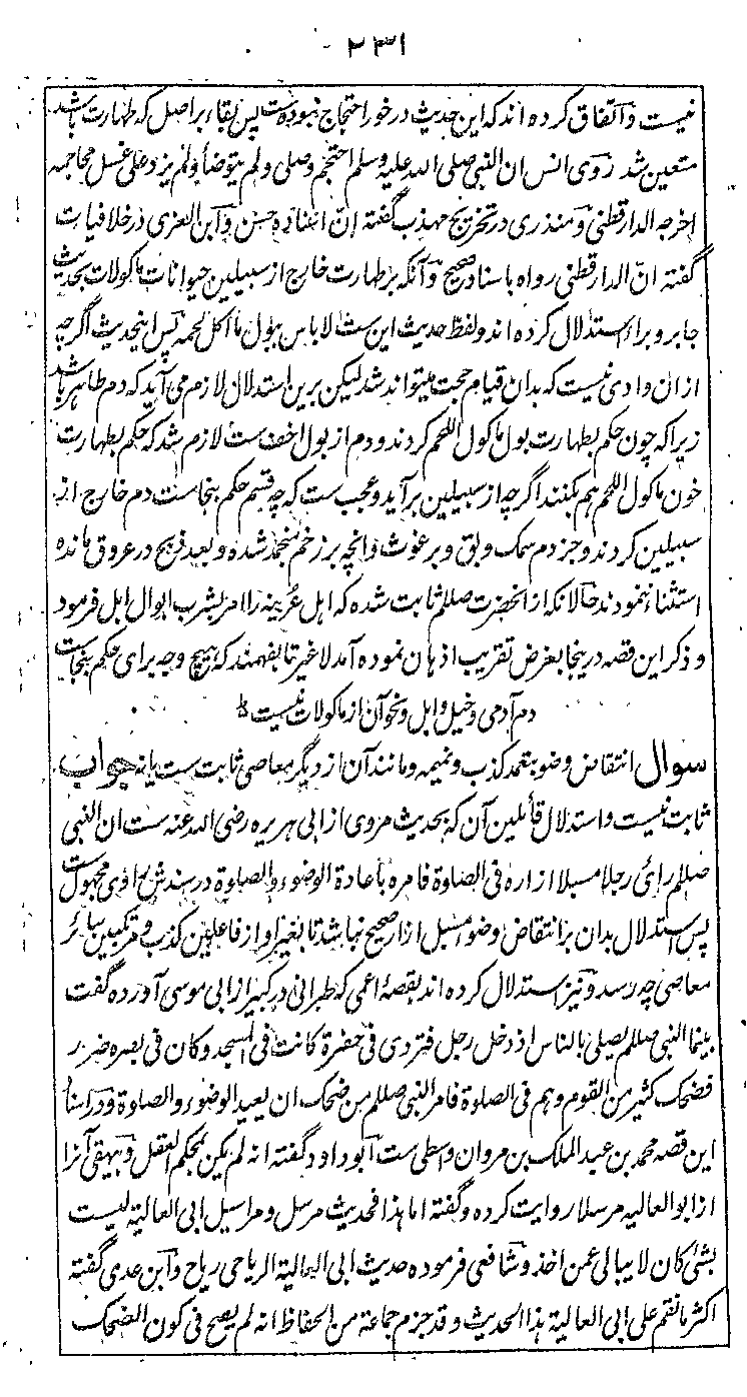 ۲۳۱
نیست و اتفاق کرده اند که این حدیث در خور احتجاج نبوده ست پس بقاء بر اصل که طهارت باشد
متعین شد روی انس ان النبی صلی الله علیه وسلم احتجم وصلی ولم یتوضأ ولم یزد علی غسل محاجمه
اخرجه الدارقطنی و منذری در تخریج مهذب گفته ان اسناده حسن و ابن العربی در خلافیات
گفته ان الدارقطنی رواه باسناد صحیح و آنکه بر طهارت خارج از سبیلین حیوانات ماکولات بحدیث
جابر و براء استدلال کرده اند و لفظ حدیث این ست لا باس ببول ما اکل لحمه پس اینحدیث اگرچه
ازان وادی نیست که بدان قیام حجت میتواند شد لیکن برین استدلال لازم می آید که دم طاهر باشد
زیراکه چون حکم بطهارت بول ماکول اللحم کردند و دم از بول اخف ست لازم شد که حکم بطهارت
خون ماکول اللحم هم بکنند اگرچه از سبیلین برآید و عجب ست که چه قسم حکم بنجاست دم خارج از
سبیلین کردند و جز دم سمک و بق و برغوث و انچه بر زخم منجمد شده و بعد ذبح در عروق مانده
استثناء ننمودند حالانکه از انحضرت صللم ثابت شده که اهل عرینه را امر بشرب ابوال ابل فرمود
و ذکر این قصه درینجا بغرض تقریب اذهان نموده آمد لا غیر تا بفهمند که هیچ وجه برای حکم بنجاست
دم آدمی و خیل و ابل و نحو آن از ماکولات نیست
سوال انتقاض وضو بتعمد کذب و نمیمه و مانند آن از دیگر معاصی ثابت ست یا نه جواب
ثابت نیست و استدلال قائلین آن که بحدیث مروی از ابی هریره رضی الله عنه ست ان النبی
صللم رای رجلا مسبلا ازاره فی الصلوة فامره باعادة الوضوء والصلوة در سندش راوی مجهول ست
پس استدلال بدان بر انتقاض وضو مسبل ازار صحیح نباشد تا بغیر او از فاعلین کذب و مرتکبین سائر
معاصی چه رسد و نیز استدلال کرده اند بقصهٔ اعمی که طبرانی در کبیر از ابی موسی آورده گفت
بینما النبی صللم یصلی بالناس اذ دخل رجل فتردی فی حفرة کانت فی المسجد وکان فی بصره ضرر
فضحک کثیر من القوم وهم فی الصلوة فامر النبی صللم من ضحک ان یعید الوضوء والصلوة و در اسناد
این قصه محمد بن عبد الملک بن مروان واسطی ست ابو داود گفته انه لم یکن بمحکم العقل و بیهقی آنرا
از ابو العالیه مرسلا روایت کرده و گفته اما هذا فحدیث مرسل و مراسیل ابی العالیة لیست
بشئ کان لا یبالی عمن اخذ و شافعی فرموده حدیث ابی العالیة الریاحی ریاح و ابن عدی گفته
اکثر ما نقم علی ابی العالیة هذا الحدیث وقد جزم جماعة من الحفاظ انه لم یصح فی کون الضحک